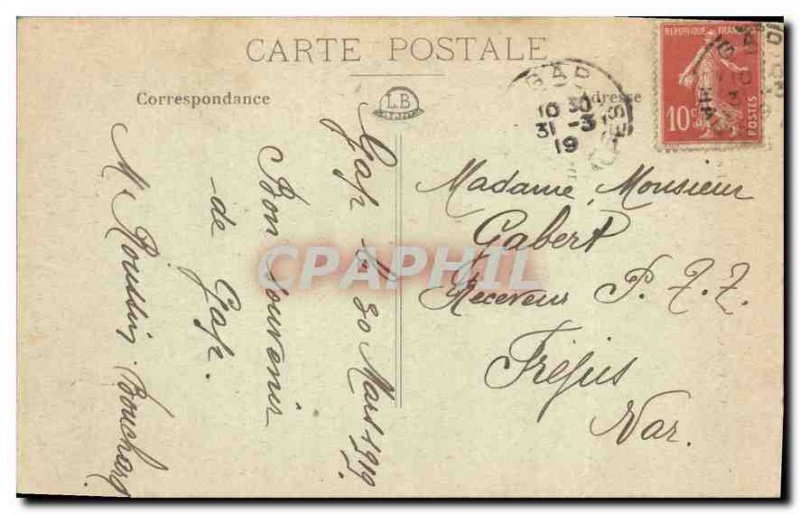 CARTE POSTALE
Correspondance
LB
Adresse
GAP
10 30
31 -3
19
REPUBLIQUE FRANÇAISE
10 c
POSTES
Gap le 30 Mars 1919
Bon souvenir
de Gap.
M. Roussin Bouchard
Madame, Monsieur
Gabert
Receveur P. T. T.
Fréjus
Var.
CPAPHIL